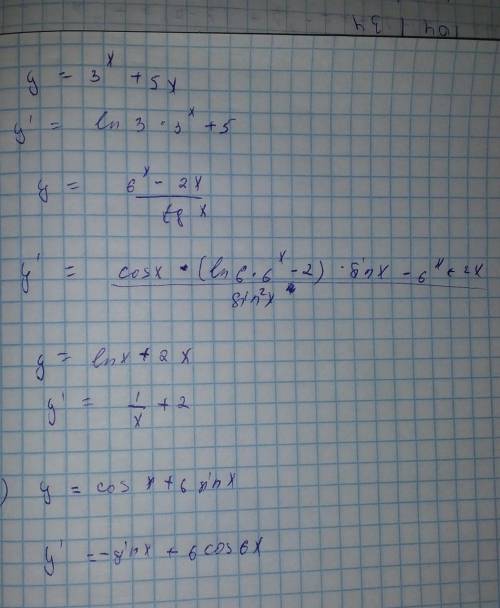 y = 3^x + 5x
y' = ln 3 · 3^x + 5
y = (6^x - 2x) / (tg x)
y' = (cosx · (ln6 · 6^x - 2) · sinx - 6^x + 2x) / (sin^2x)
y = lnx + 2x
y' = 1/x + 2
) y = cos x + 6 sinx
y' = -sinx + 6cos6x